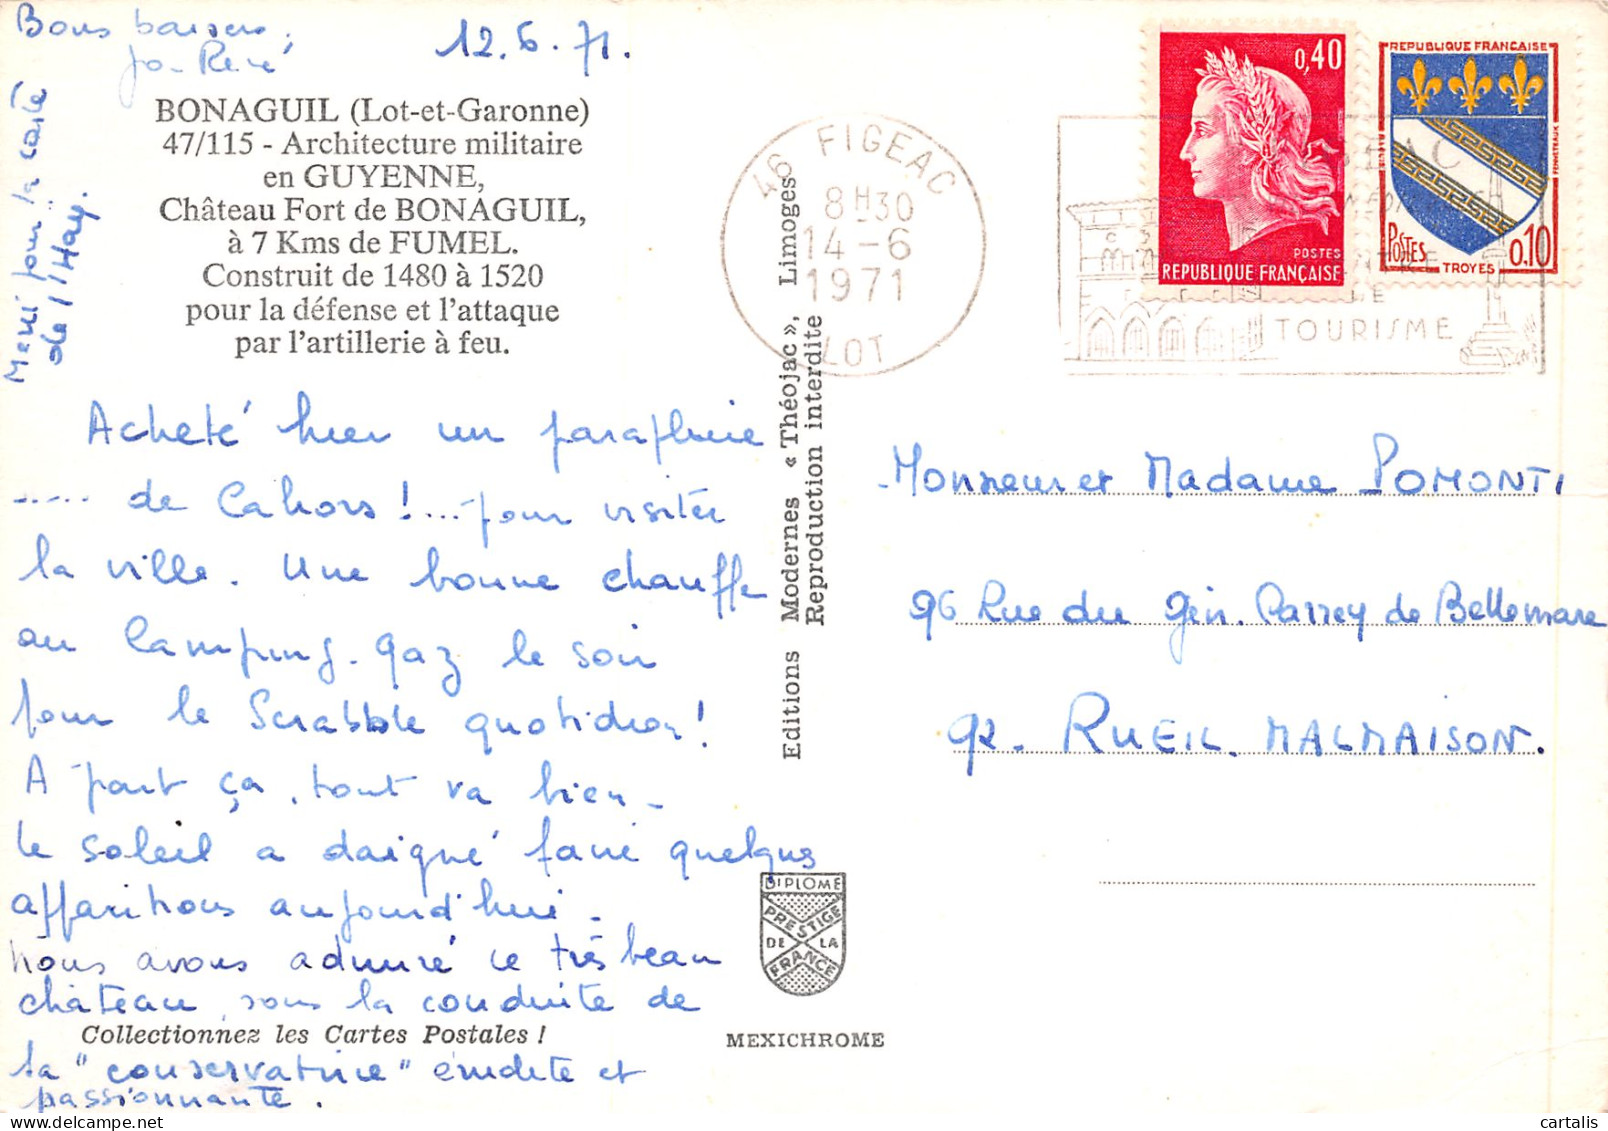 Bons baisers,
Jo-René
12.6.71.
Merci pour la carte
de l'Hay.
BONAGUIL (Lot-et-Garonne)
47/115 - Architecture militaire
en GUYENNE,
Château Fort de BONAGUIL,
à 7 Kms de FUMEL.
Construit de 1480 à 1520
pour la défense et l'attaque
par l'artillerie à feu.
Acheté hier un parapluie
..... de Cahors !... pour visiter
la ville. Une bonne chauffe
au Camping-gaz le soir
pour le Scrabble quotidien !
A part ça, tout va bien -
Le soleil a daigné faire quelques
apparitions aujourd'hui.
Nous avons admiré ce très beau
château, sous la conduite de
Collectionnez les Cartes Postales !
sa "conservatrice" érudite et
passionnante.
Editions Modernes « Théojac », Limoges
Reproduction interdite
DIPLOME
PRESTIGE
DE LA
FRANCE
MEXICHROME
46 FIGEAC
8H30
14-6
1971
LOT
0,40
POSTES
REPUBLIQUE FRANÇAISE
REPUBLIQUE FRANÇAISE
POSTES
0.10
TROYES
TOURISME
Monsieur et Madame POMONTI
96 Rue du Gén. Carrey de Bellemare
92. RUEIL. MALMAISON.
cartalis
delcampe.net